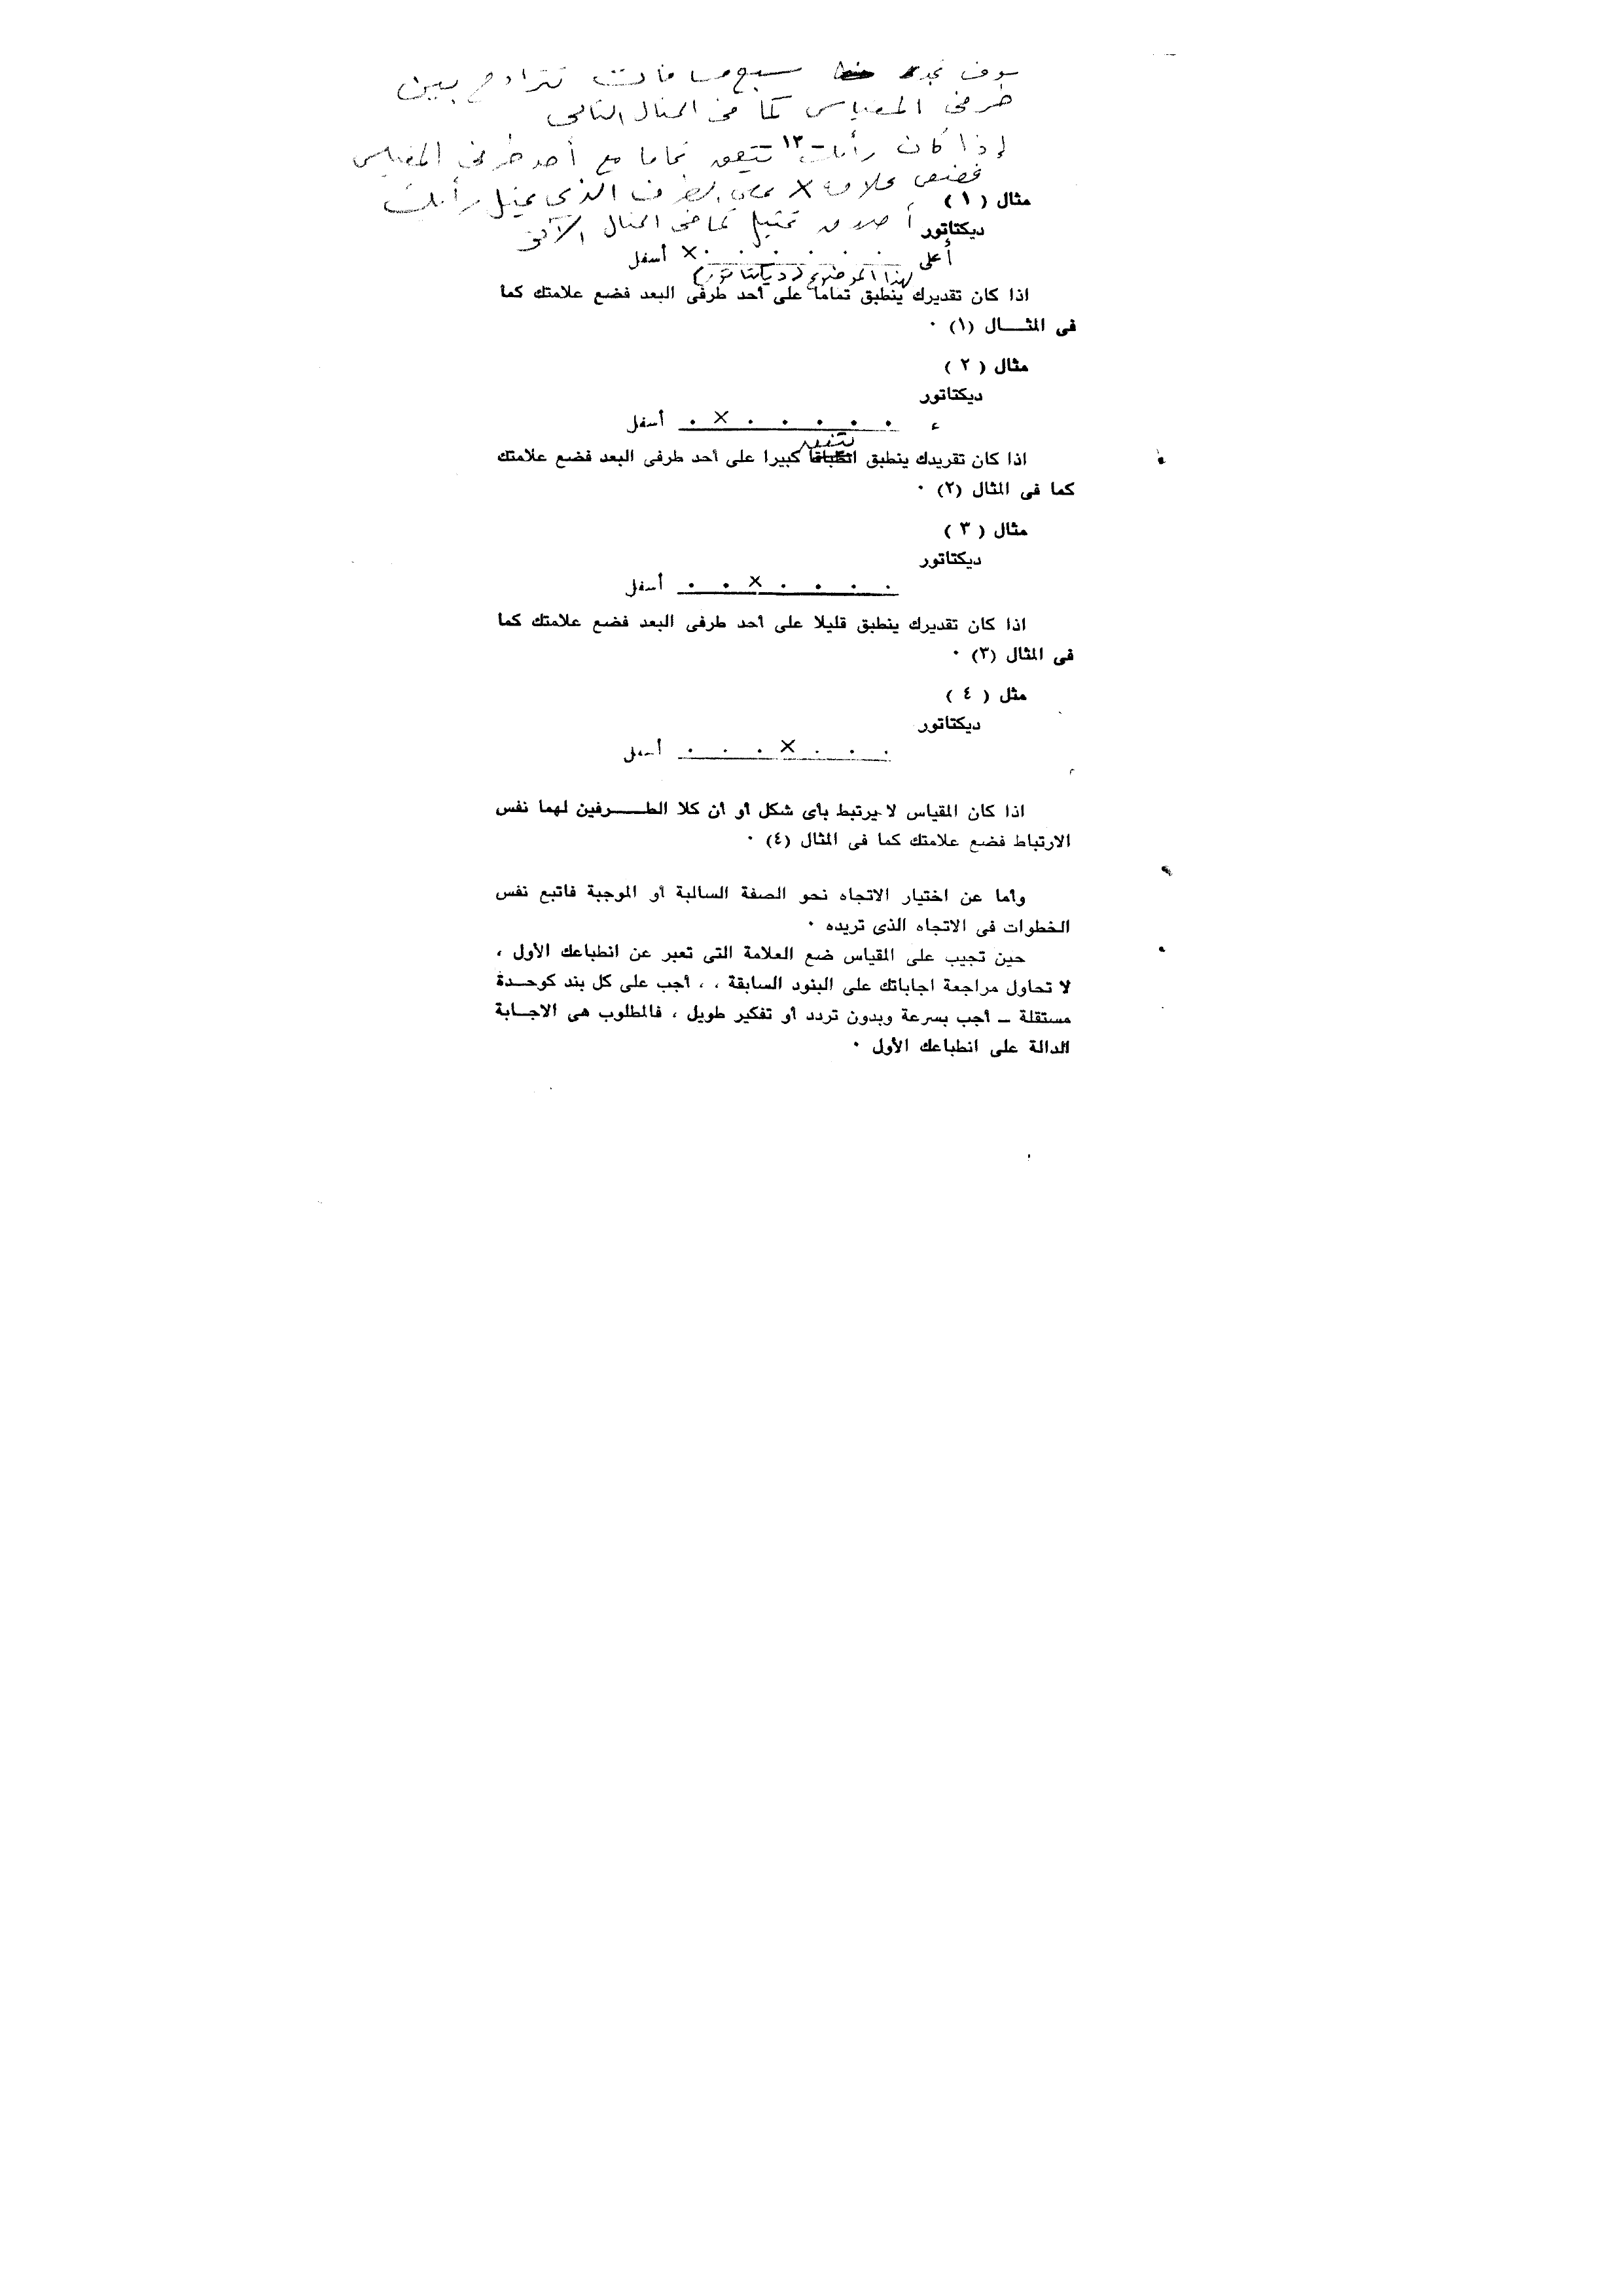 سوف تجد سبع مسافات تتراوح بين
طرفى المقياس كما فى المثال التالى
إذا كان رأيك ١٣ تتفق تماما مع أحد طرفى المقياس
فضع علامة X على الطرف الذى يمثل رأيك
مثال ( ١ )
أصدق تمثيل كما فى المثال الآتى
ديكتاتور
أعلى . . . . . . X أسفل
لهذا الموضوع (ديكتاتور)
اذا كان تقديرك ينطبق تماما على أحد طرفى البعد فضع علامتك كما
فى المثـــال (١) ٠
مثال ( ٢ )
ديكتاتور
. . . . . X . أسفل
اذا كان تقريدك ينطبق كبيرا على أحد طرفى البعد فضع علامتك
كما فى المثال (٢) ٠
مثال ( ٣ )
ديكتاتور
. . . . X . . أسفل
اذا كان تقديرك ينطبق قليلا على أحد طرفى البعد فضع علامتك كما
فى المثال (٣) ٠
مثل ( ٤ )
ديكتاتور
. . . X . . . أسفل
اذا كان المقياس لا يرتبط بأى شكل أو أن كلا الطـــرفين لهما نفس
الارتباط فضع علامتك كما فى المثال (٤) ٠
وأما عن اختيار الاتجاه نحو الصفة السالبة أو الموجبة فاتبع نفس
الخطوات فى الاتجاه الذى تريده ٠
حين تجيب على المقياس ضع العلامة التى تعبر عن انطباعك الأول ،
لا تحاول مراجعة اجاباتك على البنود السابقة ، ، أجب على كل بند كوحـدة
مستقلة ــ أجب بسرعة وبدون تردد أو تفكير طويل ، فالمطلوب هى الاجـابة
الدالة على انطباعك الأول ٠